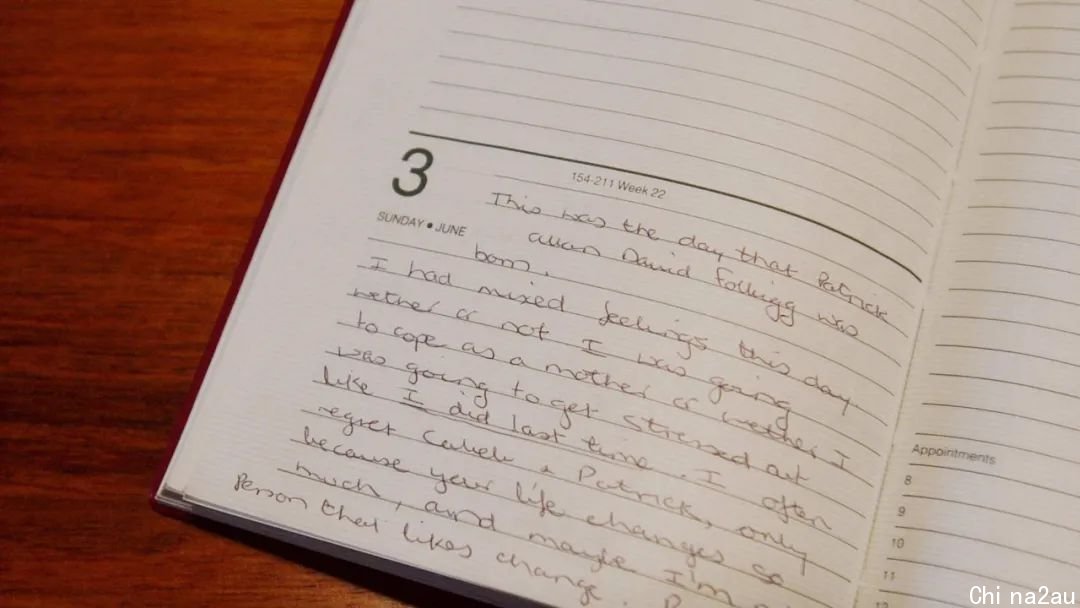 3
154-211 Week 22
SUNDAY • JUNE
This was the day that Patrick
Allan David Folbigg was
born.
I had mixed feelings this day
wether or not I was going
to cope as a mother or wether I
was going to get stressed out
like I did last time. I often
regret Caleb & Patrick, only
because your life changes so
much, and maybe I'm
Person that likes change.
Appointments
8
9
10
11
12
Chi na2au